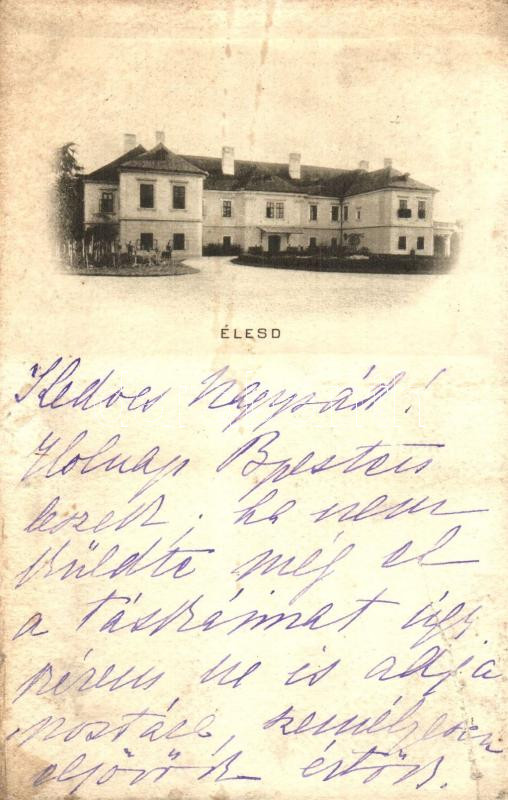 ÉLESD
Kedves Nagysád!
Holnap Bpesten
leszek, ha nem
küldte még el
a táskáimat úgy
kérem ne is adja
postára, személyesen
eljövök értök.